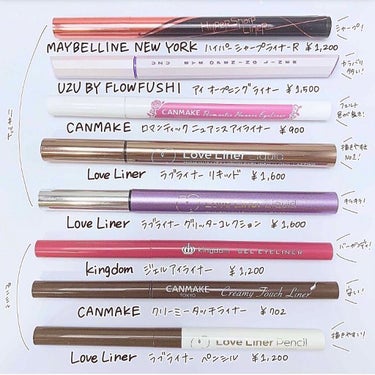 Hyper Sharp Liner
シャープ!
MAYBELLINE NEW YORK ハイパーシャープライナーR ¥1,200
UZU
EYE OPENING LINER
UZU BY FLOWFUSHI アイオープニングライナー ¥1,500
CANMAKE Romantic Nuance Eyeliner
CANMAKE ロマンティックニュアンスアイライナー ¥900
Love Liner Liquid
Love Liner ラブライナー リキッド ¥1,600
Love Liner
キラキラ!
Love Liner ラブライナー グリッターコレクション ¥1,600
Kingdom GEL EYELINER
kingdom ジェルアイライナー ¥1,200
CANMAKE TOKYO Creamy Touch Liner
安い!
CANMAKE クリーミータッチライナー ¥702
Love Liner Pencil
描きやすい!
Love Liner ラブライナー ペンシル ¥1,200